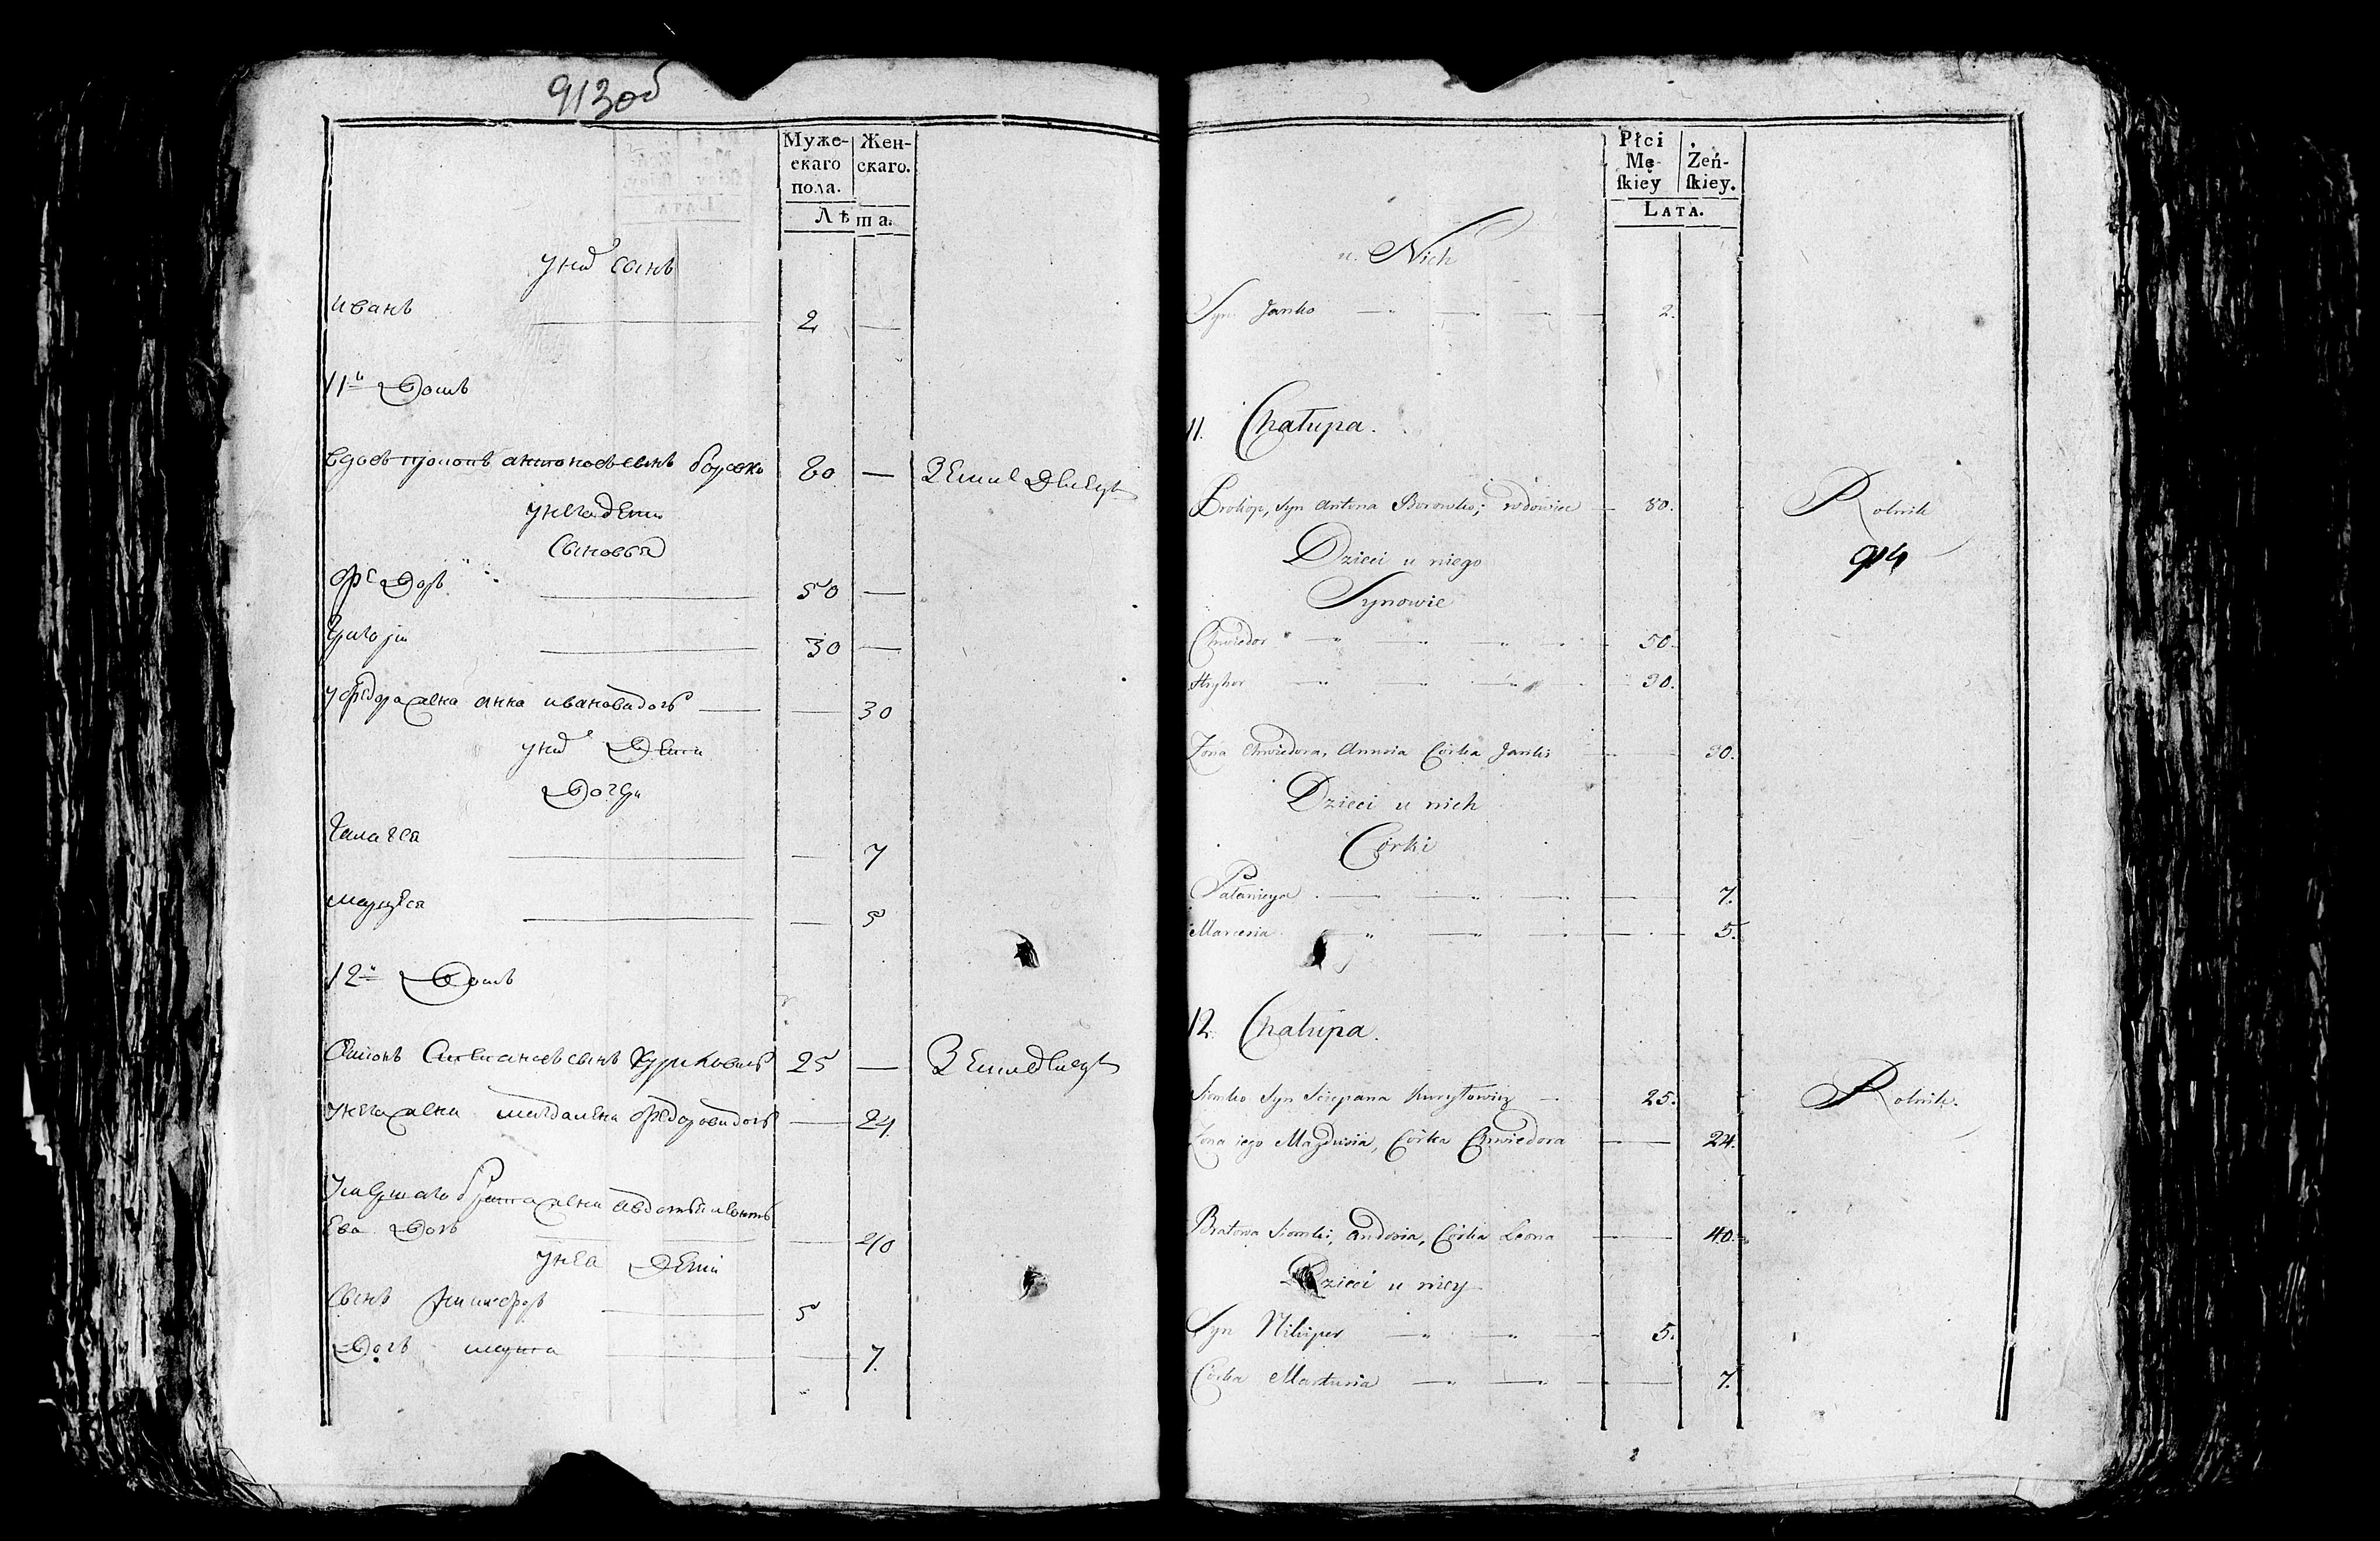 913об
Муже-
скаго
пола.
Жен-
скаго.
Лѣта.
у них сынъ
иванъ 2 —
11й Домъ
вдовъ прокопъ антоновъ сынъ 80 — Земледелецъ
у него дети
Сыновья
Федоръ 50 —
Григори 30 —
у Федора жена анна иванова дочь — 30
у них Дети
Дочери
— 7
— 5
12й Домъ
Симонъ Степановъ сынъ 25 — Земледелецъ
у него жена магдалена Федорова дочь — 24
брата жена авдотья леонть
ева дочь — 40
у нея Дети
Сынъ 5
Дочь марта — 7.
Płci
Mę-
ſkiey
Żeń-
ſkiey.
LATA.
u. Nich
Syn Janko 2.
11. Chałupa.
Prokop, Syn Antona Borowko; wdowiec 80. Rolnik
914
Dzieci u niego
Synowie
Chwiedor 50.
Hryhor 30.
Żona Chwiedora, Annusia Córka Janki 30.
Dzieci u nich
Córki
Pałanieya 7.
Marcesia 5.
12. Chałupa.
Siomko Syn Sciepana Kuryłowicz 25. Rolnik.
Żona jego Magdusia, Córka Chwiedora 24.
Bratowa Siomki, Audosia, Córka Leona 40.
Dzieci u niey
Syn Nikiper 5.
Córka Martusia 7.